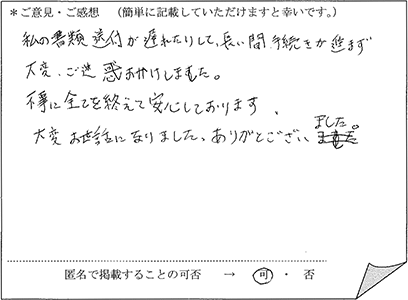 ＊ご意見・ご感想　（簡単に記載していただけますと幸いです。）
私の書類送付が遅れたりして、長い間手続きが進まず
大変、ご迷惑おかけしました。
無事に全てを終えて安心しております、
大変お世話になりました、ありがとうござい ました。
匿名で掲載することの可否　→　可　・　否